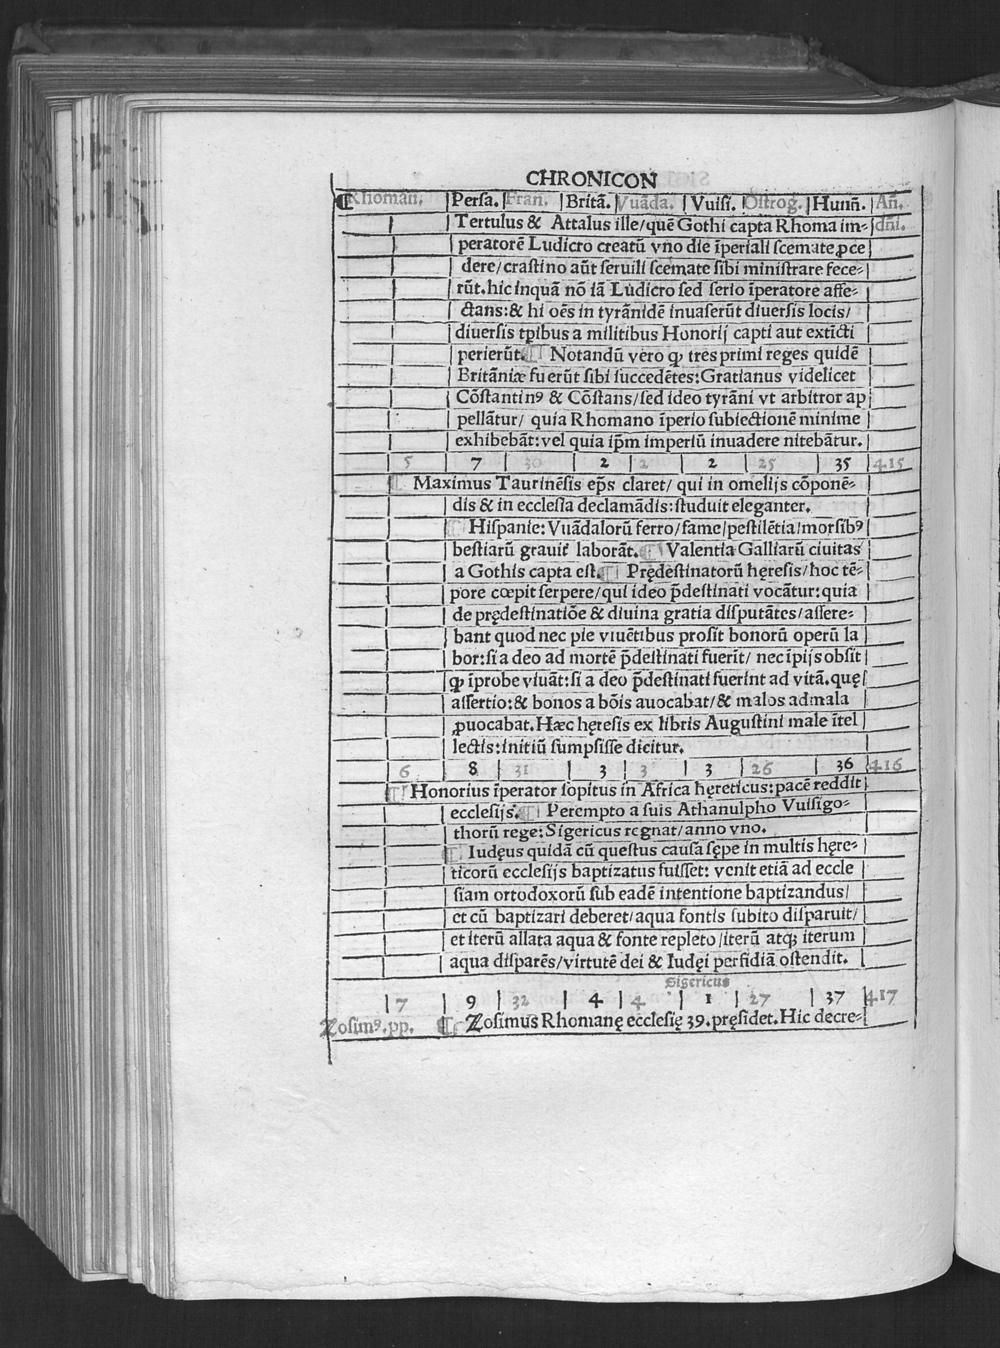 CHRONICON
¶Rhomañ. |Persa.|Fran.|Britã.|Vuãda.|Vuisi.|Ostrog.|Hunñ.|Añ.
Tertulus & Attalus ille/quē Gothi capta Rhoma im⸗|dñi.
peratorē Ludicro creatū vno die īperiali scemate ꝓce
dere/crastino aūt seruili scemate sibi ministrare fece⸗
rūt.hic inquā nō iā Ludicro sed serio īperatore affe⸗
ctans:& hi oēs in tyrānidē inuaserūt diuersis locis/
diuersis tp̄ibus a militibus Honorij capti aut extīcti
perierūt.¶ Notandū vero ꝙ tres primi reges quidē
Britāniæ fuerūt sibi succedētes:Gratianus videlicet
Cōstantinꝰ & Cōstans/sed ideo tyrāni vt arbitror ap
pellātur/ quia Rhomano īperio subiectionē minime
exhibebāt:vel quia ip̄m imperiū inuadere nitebātur.
5 | 7 | 30 | 2 | 2 | 2 | 25 | 35 |415
¶ Maximus Taurinēsis ep̄s claret/ qui in omelijs cōponē⸗
dis & in ecclesia declamādis:studuit eleganter.
¶ Hispanie:Vuādalorū ferro/fame/pestilētia/morsibꝰ
bestiarū grauit̄ laborāt.¶ Valentia Galliarū ciuitas
a Gothis capta est.¶ Prędestinatorū hęresis/hoc tē⸗
pore cœpit serpere/qui ideo p̄destinati vocātur:quia
de prędestinatiōe & diuina gratia disputātes/assere⸗
bant quod nec pie viuētibus prosit bonorū operū la
bor:si a deo ad mortē p̄destinati fuerīt/ nec īpijs obsit
ꝙ īprobe viuāt:si a deo p̄destinati fuerint ad vitā.quę
assertio:& bonos a bōis auocabat/& malos ad mala
ꝓuocabat.Hæc hęresis ex libris Augustini male ītel
lectis:initiū sumpsisse dicitur.
6 | 8 | 31 | 3 | 3 | 3 | 26 | 36 |416
¶ Honorius īperator sopitus in Africa hęreticus:pacē reddit
ecclesijs.¶ Perempto a suis Athanulpho Vuisigo⸗
thorū rege:Sigericus regnat/anno vno.
¶ Iudęus quidā cū questus causa sępe in multis hęre⸗
ticorū ecclesijs baptizatus fuisset: venit etiā ad eccle
siam ortodoxorū sub eadē intentione baptizandus/
et cū baptizari deberet/aqua fontis subito disparuit/
et iterū allata aqua & fonte repleto/iterū atqꝫ iterum
aqua disparēs/virtutē dei & Iudęi perfidiā ostendit.
Sigericus
| 7 | 9 | 32 | 4 | 4 | 1 | 27 | 37 |417
Zosimꝰ.pp. ¶ Zosimus Rhomanę ecclesię 39.pręsidet.Hic decre⸗